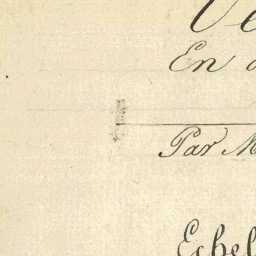 En
Par M
Echel